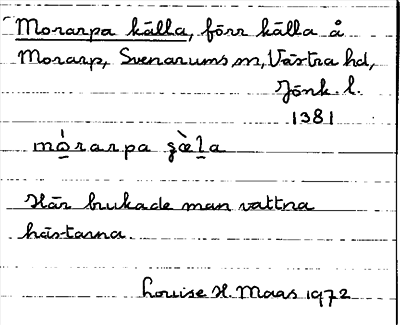 Morarpa källa, förr källa å
Morarp, Svenarums sn, Västra hd,
Jönk. l.
1381
mòrarpa ʒæ̀la
Här brukade man vattna
hästarna.
Louise H. Maas 1972